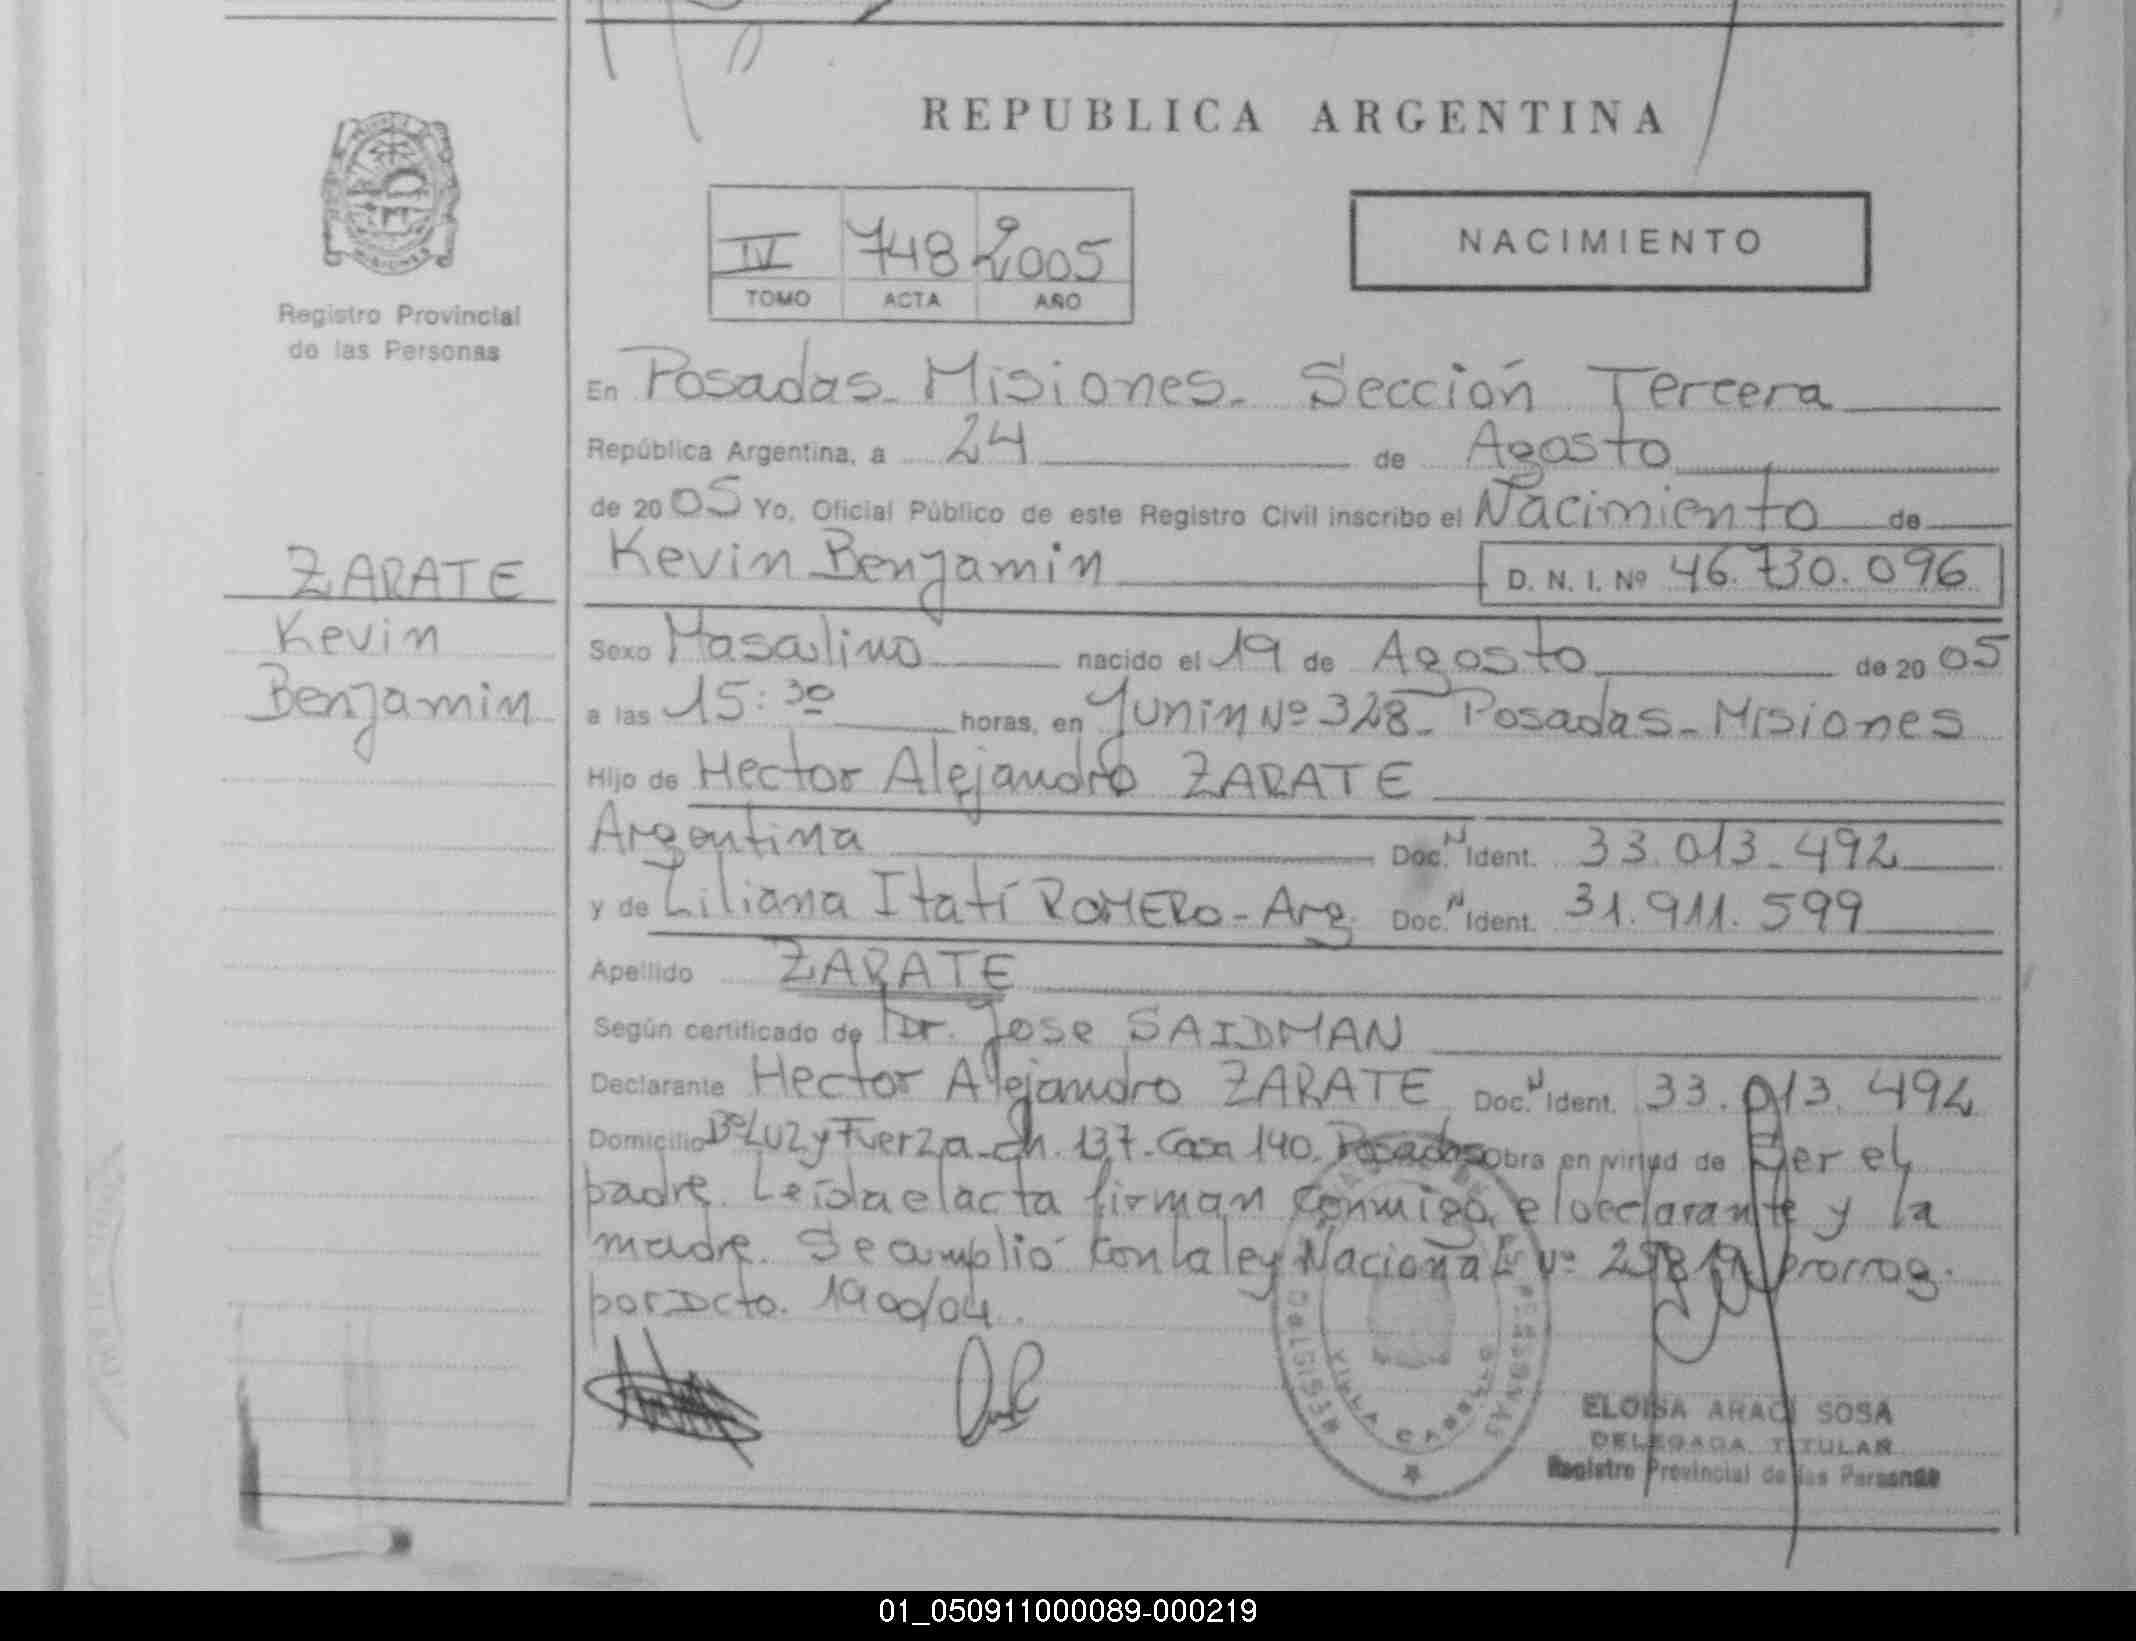 REPUBLICA ARGENTINA
IV 748 2005
TOMO ACTA AÑO
NACIMIENTO
Registro Provincial
de las Personas
ZARATE
Kevin
Benjamin
En Posadas - Misiones - Sección Tercera
República Argentina, a 24 de Agosto
de 2005 Yo, Oficial Público de este Registro Civil inscribo el Nacimiento de
Kevin Benjamin D. N. I. Nº 46.730.096
Sexo Masculino nacido el 19 de Agosto de 2005
a las 15:30 horas, en Junin Nº 328 - Posadas - Misiones
Hijo de Hector Alejandro ZARATE
Argentina Doc. N Ident. 33.013.492
y de Liliana Itatí ROMERO - Arg. Doc. N Ident. 31.911.599
Apellido ZARATE
Según certificado de Dr. Jose SAIDMAN
Declarante Hector Alejandro ZARATE Doc. N Ident. 33.013.492
Domicilio Bº Luz y Fuerza - Ch. 137 - Casa 140. Posadas Obra en virtud de Ser el
padre. Leída el acta firman conmigo, el declarante y la
madre. Se amplió con la ley Nacional Nº prorrog.
por Dcto. 1900/04.
VILLA CABELLO
ELOISA ARACI SOSA
DELEGADA TITULAR
Registro Provincial de las Personas
01_050911000089-000219